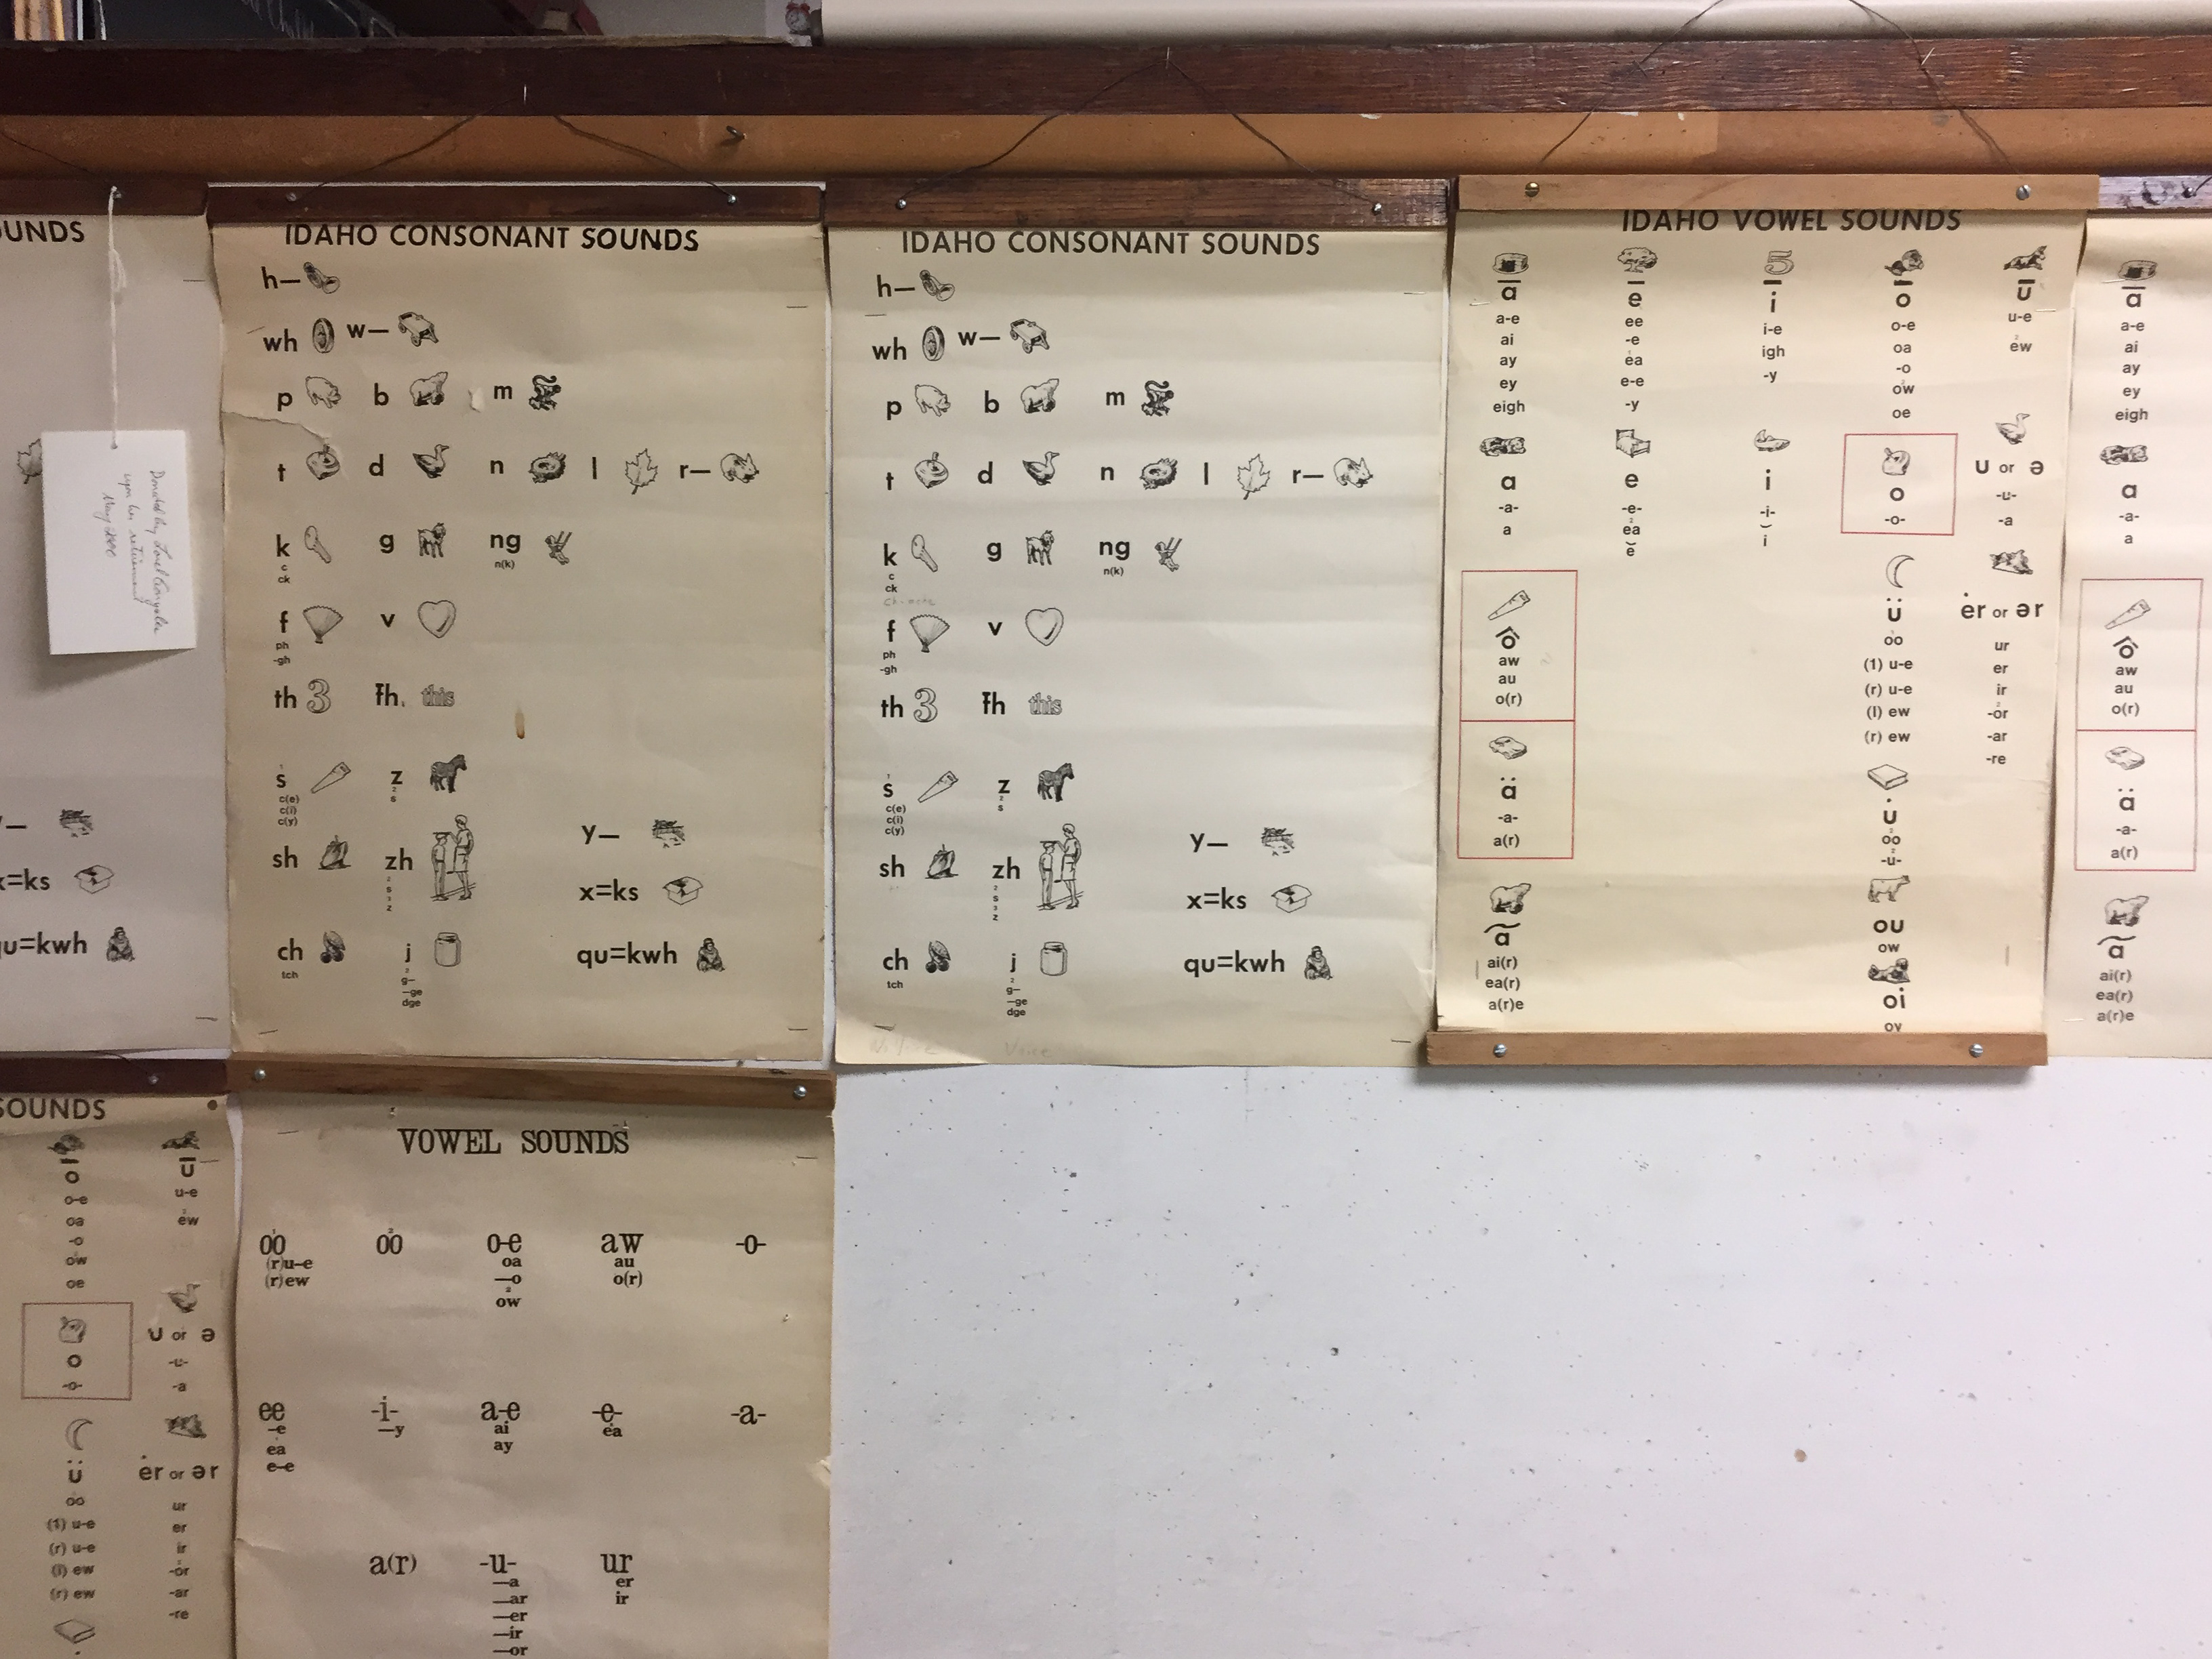 OUNDS
x=ks
qu=kwh
Donated by
upon her retirement
May
IDAHO CONSONANT SOUNDS
h—
wh w—
p b m
t d n l r—
k g ng
c n(k)
ck
f v
ph
-gh
th th this
3
s z
1 2
c(e) s
c(i)
c(y)
y—
sh zh
2
s
3
z
x=ks
ch j qu=kwh
tch 2
g—
—ge
dge
IDAHO CONSONANT SOUNDS
h—
wh w—
p b m
t d n l r—
k g ng
c n(k)
ck
f v
ph
-gh
th 3 th this
s z
1 2
c(e) s
c(i)
c(y)
y—
sh zh
2
s
3
z
x=ks
ch j qu=kwh
tch 2
g—
—ge
dge
Voice
IDAHO VOWEL SOUNDS
5
ā ē ī ō ū
a-e ee i-e o-e u-e
ai -e igh oa ew
ay ea -y -o
ey e-e ow
eigh -y oe
a e i o u or ə
-a- -e- -i- -o- -u-
a ea i -a
ĕ
ô
aw
au
o(r)
ä
-a-
a(r)
ü ėr or ər
oo ur
(1) u-e er
(r) u-e ir
(l) ew -or
(r) ew -ar
-re
u̇
oo
-u-
ou
ow
oi
oy
ã
ai(r)
ea(r)
a(r)e
ā
a-e
ai
ay
ey
eigh
a
-a-
a
ô
aw
au
o(r)
ä
-a-
a(r)
ã
ai(r)
ea(r)
a(r)e
SOUNDS
ō ū
o-e u-e
oa ew
-o
ow
oe
o u or ə
-o- -u-
-a
ü ėr or ər
oo ur
(1) u-e er
(r) u-e ir
(l) ew -or
(r) ew -ar
-re
VOWEL SOUNDS
oo oo o-e aw -o-
(r)u-e oa au
(r)ew —o o(r)
ow
ee -i- a-e -e- -a-
-e —y ai ea
ea ay
e-e
a(r) -u- ur
—a er
—ar ir
—er
—ir
—or